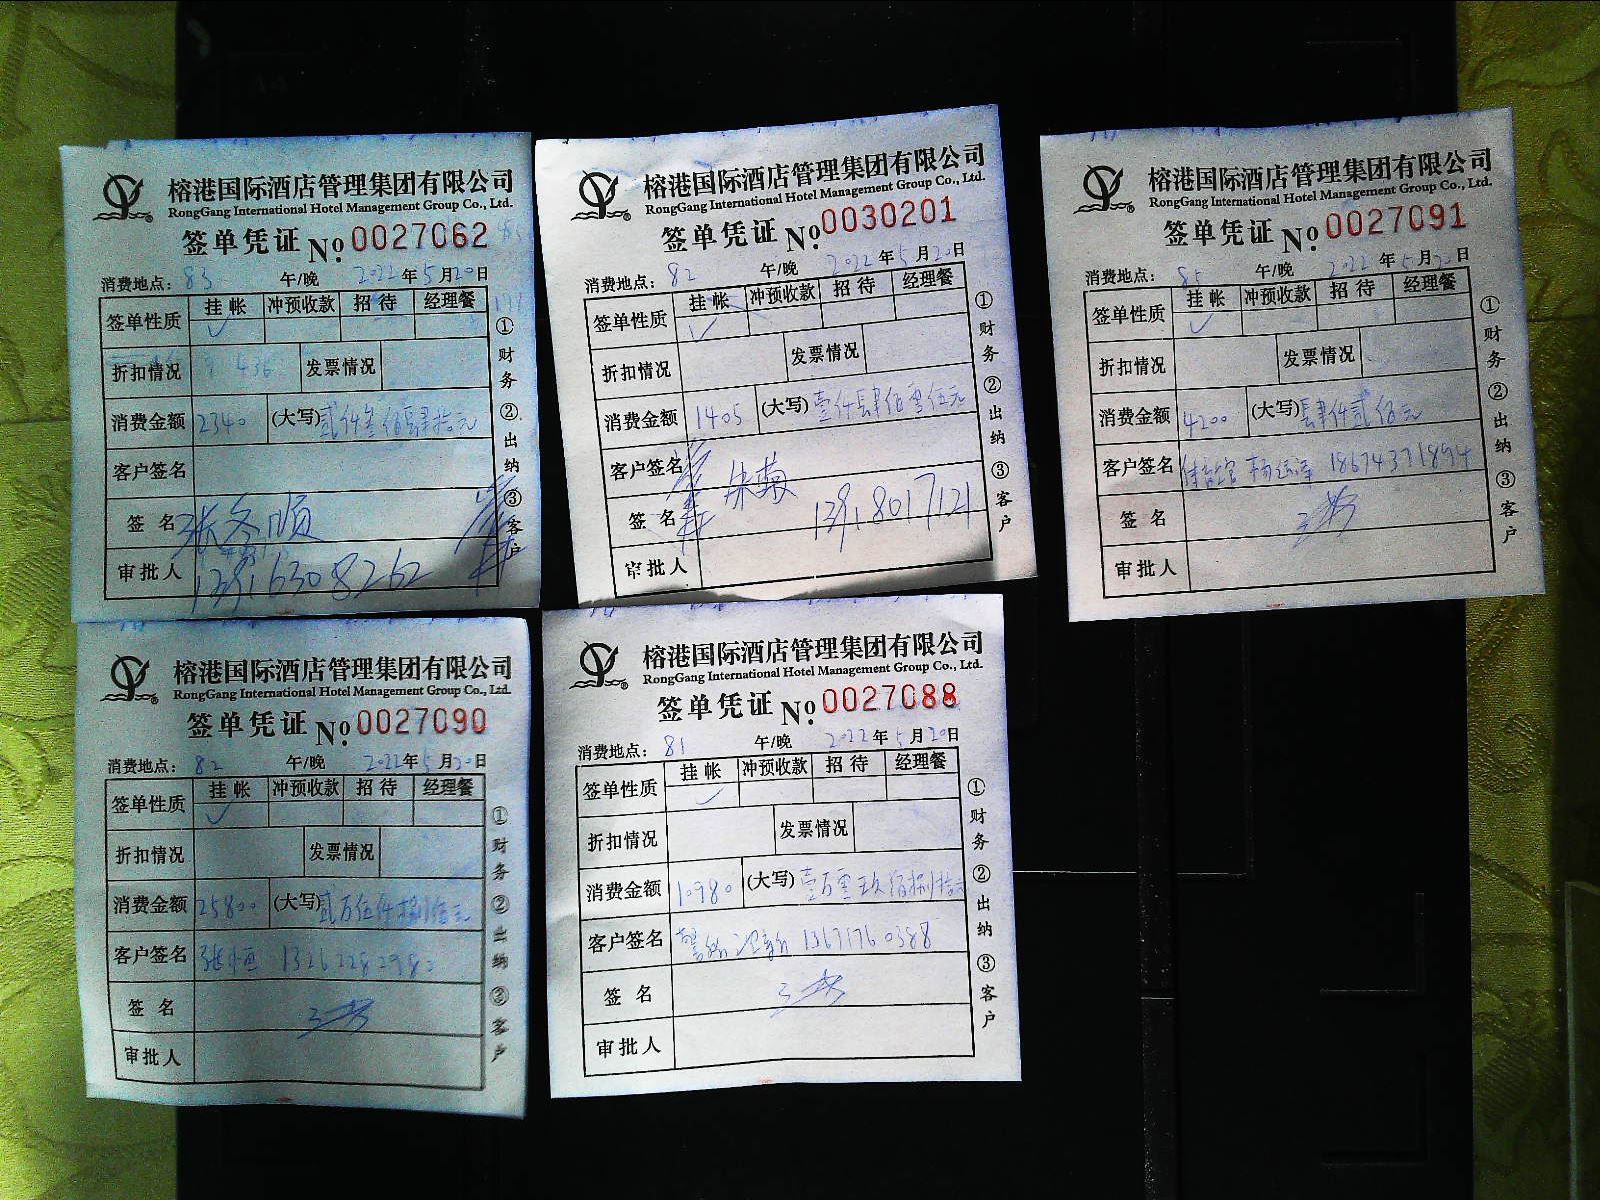 榕港国际酒店管理集团有限公司
RongGang International Hotel Management Group Co., Ltd.
签单凭证 No. 0027062
消费地点: 83 午/晚 2022年5月20日
签单性质 挂帐 冲预收款 招待 经理餐
✓
折扣情况 436 发票情况
消费金额 2340 (大写) 贰仟叁佰肆拾元
客户签名
签名 张冬顺
审批人 13916308262
①财务 ②出纳 ③客户
榕港国际酒店管理集团有限公司
RongGang International Hotel Management Group Co., Ltd.
签单凭证 No. 0030201
消费地点: 82 午/晚 2022年5月20日
签单性质 挂帐 冲预收款 招待 经理餐
✓
折扣情况 发票情况
消费金额 1405 (大写) 壹仟肆佰零伍元
客户签名 朱菊
签名 13918017121
审批人
①财务 ②出纳 ③客户
榕港国际酒店管理集团有限公司
RongGang International Hotel Management Group Co., Ltd.
签单凭证 No. 0027091
消费地点: 85 午/晚 2022年5月20日
签单性质 挂帐 冲预收款 招待 经理餐
✓
折扣情况 发票情况
消费金额 4200 (大写) 肆仟贰佰元
客户签名 18674371894
签名
审批人
①财务 ②出纳 ③客户
榕港国际酒店管理集团有限公司
RongGang International Hotel Management Group Co., Ltd.
签单凭证 No. 0027090
消费地点: 82 午/晚 2022年5月20日
签单性质 挂帐 冲预收款 招待 经理餐
✓
折扣情况 发票情况
消费金额 25800 (大写) 贰万伍仟捌佰元
客户签名 张恒 13262282982
签名
审批人
①财务 ②出纳 ③客户
榕港国际酒店管理集团有限公司
RongGang International Hotel Management Group Co., Ltd.
签单凭证 No. 0027088
消费地点: 81 午/晚 2022年5月20日
签单性质 挂帐 冲预收款 招待 经理餐
✓
折扣情况 发票情况
消费金额 10980 (大写) 壹万零玖佰捌拾元
客户签名 13671760388
签名
审批人
①财务 ②出纳 ③客户